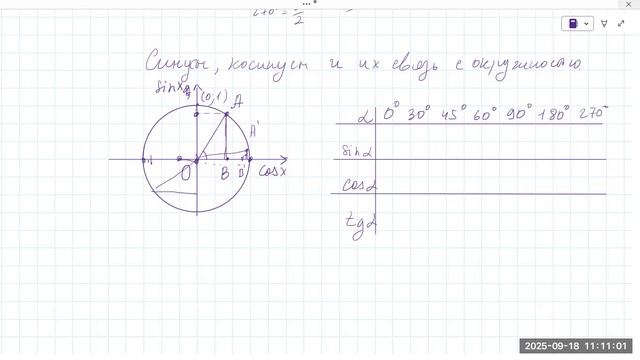 Синусы, косинусы и их связь с окружностью
sinx
(0;1)
A
A'
-1
O
B
B'
cosx
α 0° 30° 45° 60° 90° 180° 270°
sinα
cosα
tgα
2025-09-18 11:11:01